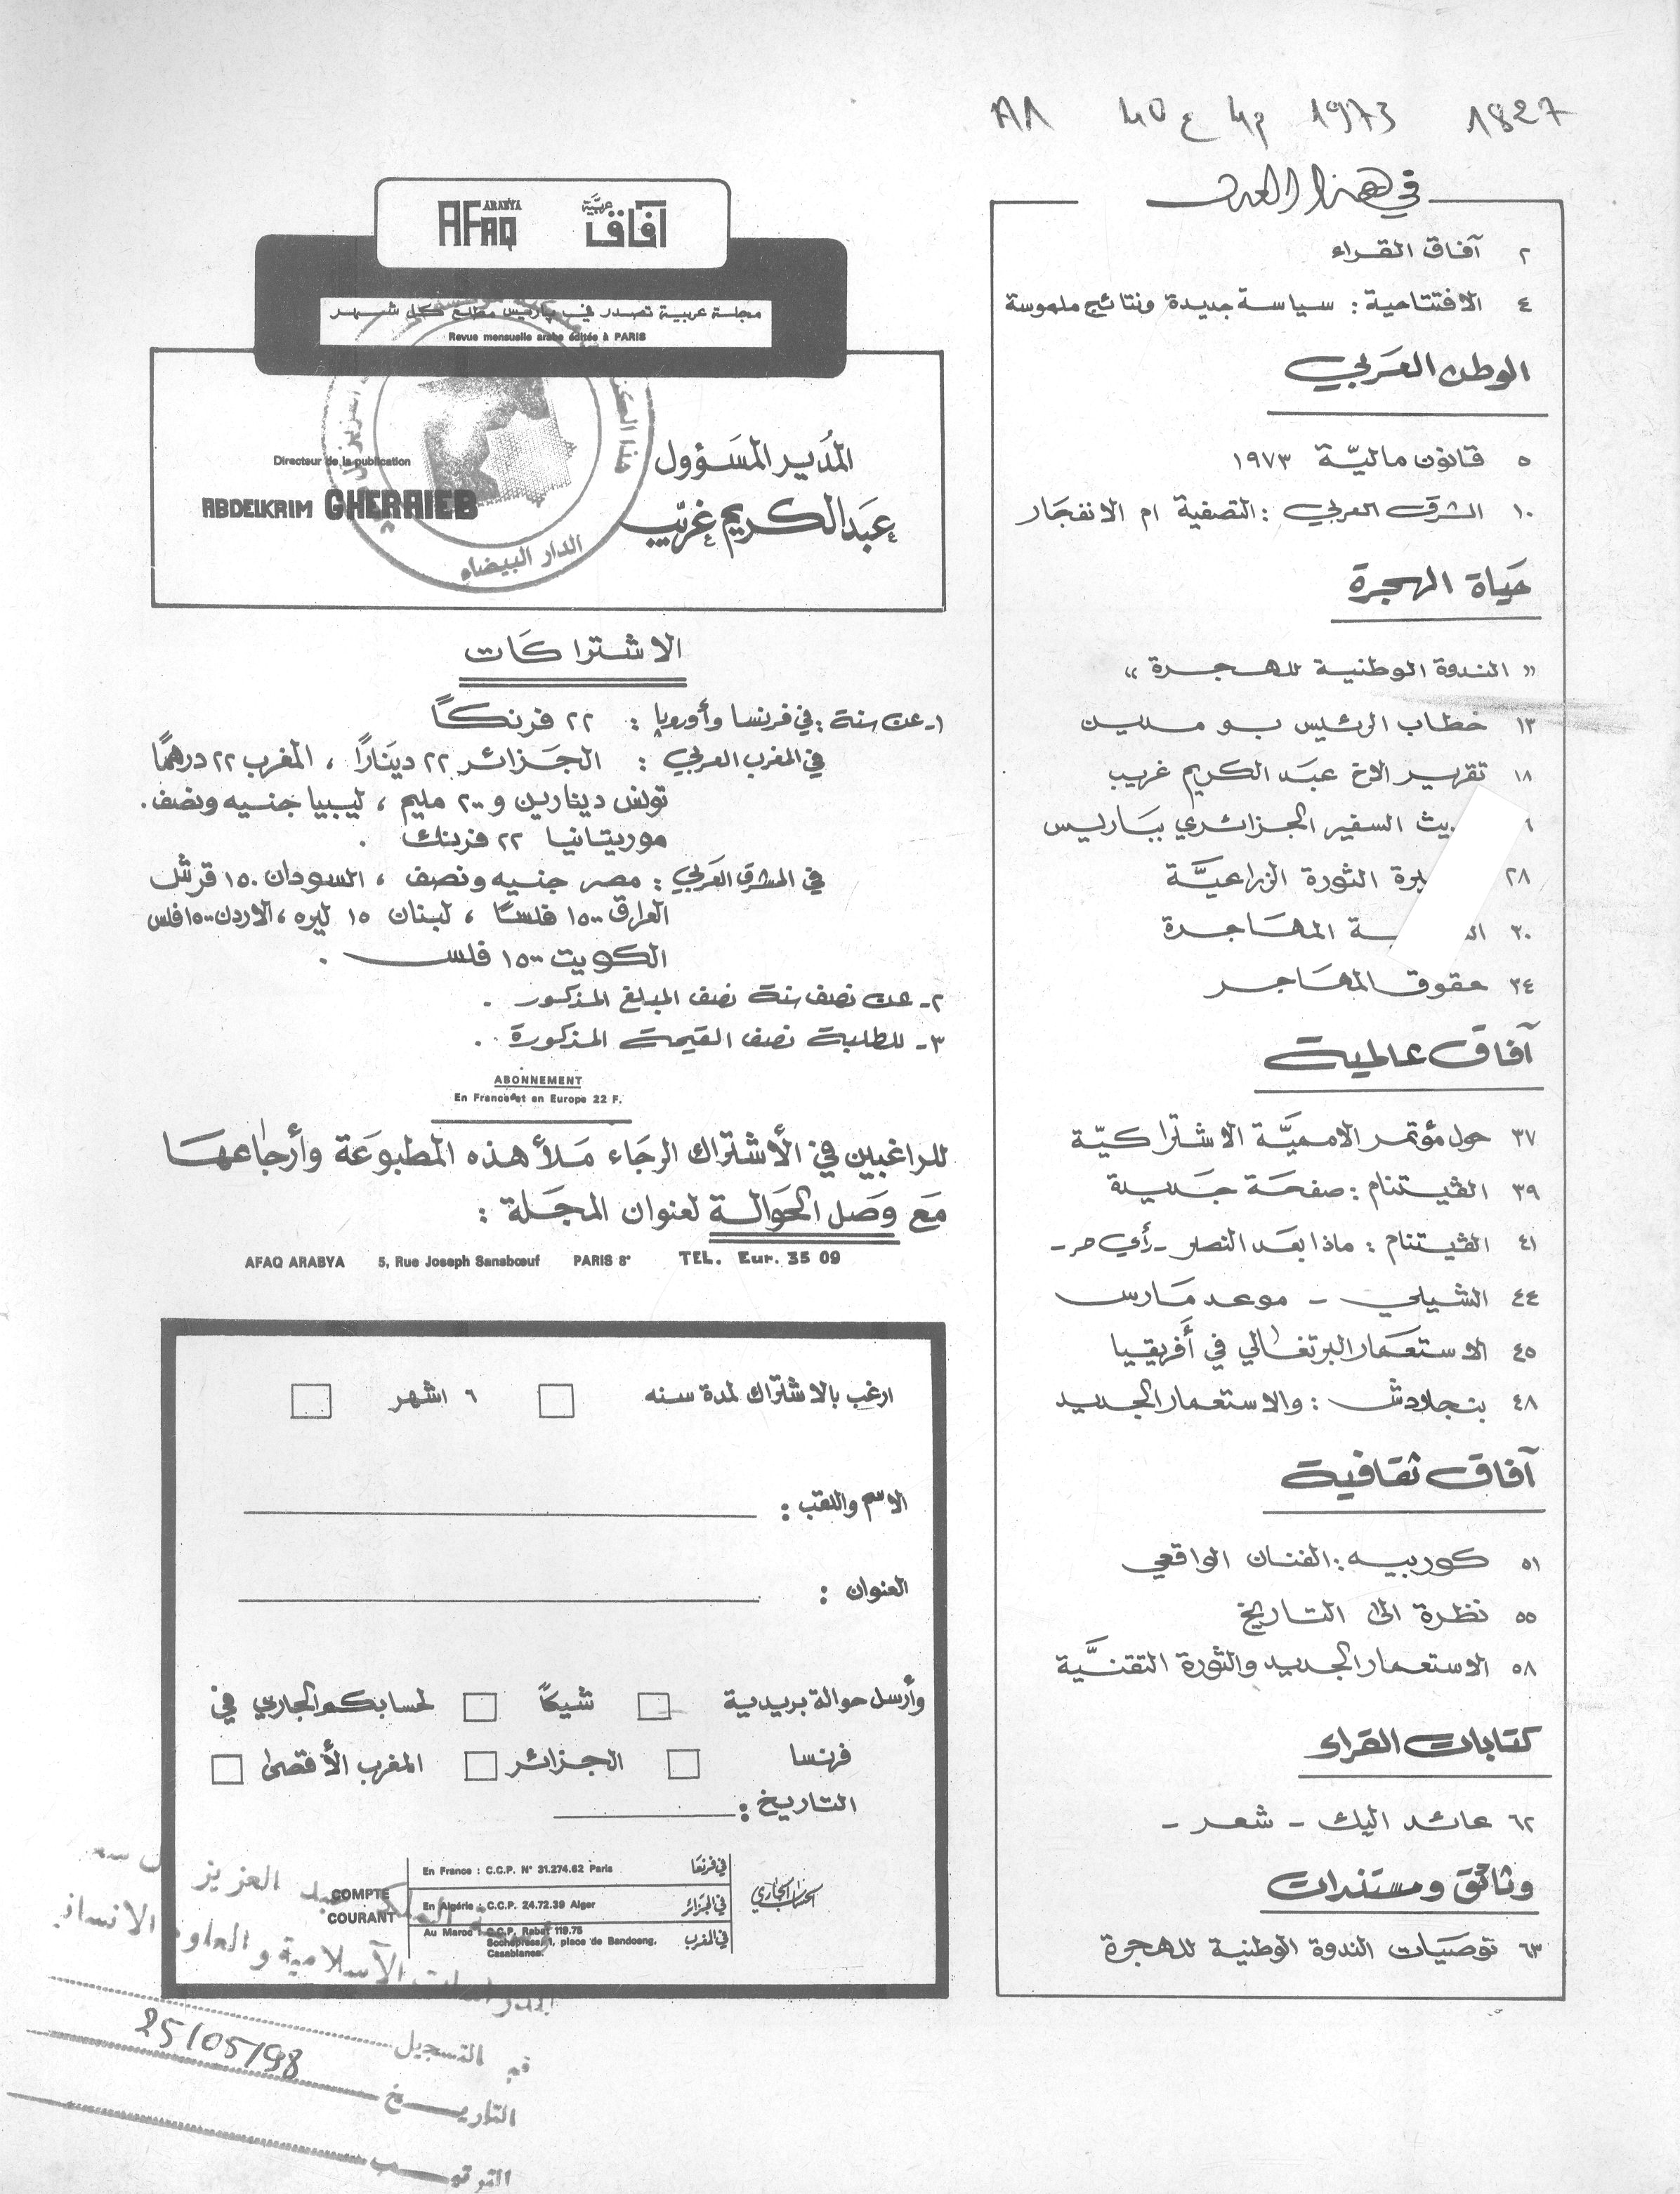 1827 1973
في هذا العدد
٢ آفاق القراء
٤ الافتتاحية : سياسة جديدة ونتائج ملموسة
الوطن العربي
٥ قانون ماليّة ١٩٧٣
١٠ الشرق العربي : التصفية ام الانفجار
حياة الهجرة
« الندوة الوطنية للهجرة »
١٣ خطاب الرئيس بو مدين
١٨ تقرير الاخ عبد الكريم غريب
السفير الجزائري بباريس
٢٨ الثورة الزراعيَّة
٣٠ المهاجرة
٣٤ حقوق المهاجر
آفاق عالمية
٣٧ حول مؤتمر الامميَّة الاشتراكيّة
٣٩ الڤيتنام : صفحة جديدة
٤١ الڤيتنام : ماذا بعد النصر - رأي حر -
٤٤ الشيلي - موعد مارس
٤٥ الاستعمار البرتغالي في أفريقيا
٤٨ بنجلادش : والاستعمار الجديد
آفاق ثقافية
٥١ كوربيه : الفنان الواقعي
٥٥ نظرة الى التاريخ
٥٨ الاستعمار الجديد والثورة التقنيَّة
كتابات القراء
٦٢ عائد اليك - شعر -
وثائق ومستندات
٦٣ توصيات الندوة الوطنية للهجرة
آفاق عربيَّة
AFAQ ARABYA
مجلة عربية تصدر في باريس مطلع كل شهر
Revue mensuelle arabe éditée à PARIS
المُدير المسَؤول
Directeur de la publication
عبَد الكريم غريّب
ABDELKRIM GHERAIEB
الدار البيضاء
الاشتراكَات
١- عن سنة : في فرنسا وأوروبا : ٢٢ فرنكاً
في المغرب العربي : الجَزائر ٢٢ دينَارًا ، المغرب ٢٢ درهمًا
تونس دينارين و ٢٠٠ مليم ، ليبيا جنيه ونصف .
موريتانيا ٢٢ فرنك .
في المشرق العَربي : مصر جنيه ونصف ، السودان ١٥٠ قرش
العراق ١٥٠٠ فلسًا ، لبنان ١٥ ليره ، الاردن ١٥٠٠ فلس
الكويت ١٥٠٠ فلس .
٢- عن نصف سنة نصف المبلغ المذكور .
٣- للطلبة نصف القيمة المذكورة .
ABONNEMENT
En France et en Europe 22 F.
للراغبين في الأشتراك الرجَاء مَلأ هذه المطبوعَة وأرجاعهَا
مَع وَصل الحَوالة لعنوان المجَلة :
AFAQ ARABYA 5, Rue Joseph Sansbœuf PARIS 8° TEL. Eur. 35 09
ارغب بالاشتراك لمدة سنه ٦ اشهر
الاسم واللقب :
العنوان :
وأرسل حوالة بريدية شيكاً لحسابكم الجاري في
فرنسا الجزائر المغرب الأقصى
التاريخ :
الحساب الجاري
COMPTE COURANT
En France : C.C.P. N° 31.274.62 Paris في فرنسا
En Algérie : C.C.P. 24.72.39 Alger في الجزائر
Au Maroc : C.C.P. Rabat 119.75 في المغرب
Sochepress, 1, place de Bandoeng.
Casablanca.
عبد العزيز
الاسلامية والعلوم
التسجيل
التاريخ 25/05/98